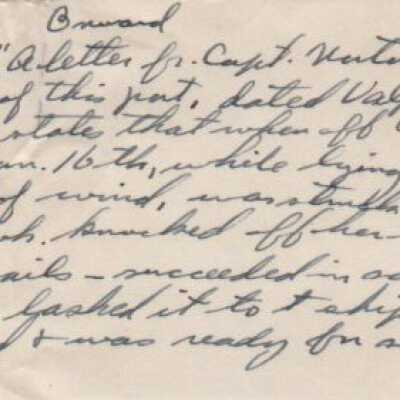 Onward
"A letter fr. Capt.
of this port, dated Val
states that when off
an. 16th, while lying
of wind, was struck
knocked off her
ails – succeeded in
lashed it to t ship
& was ready for s